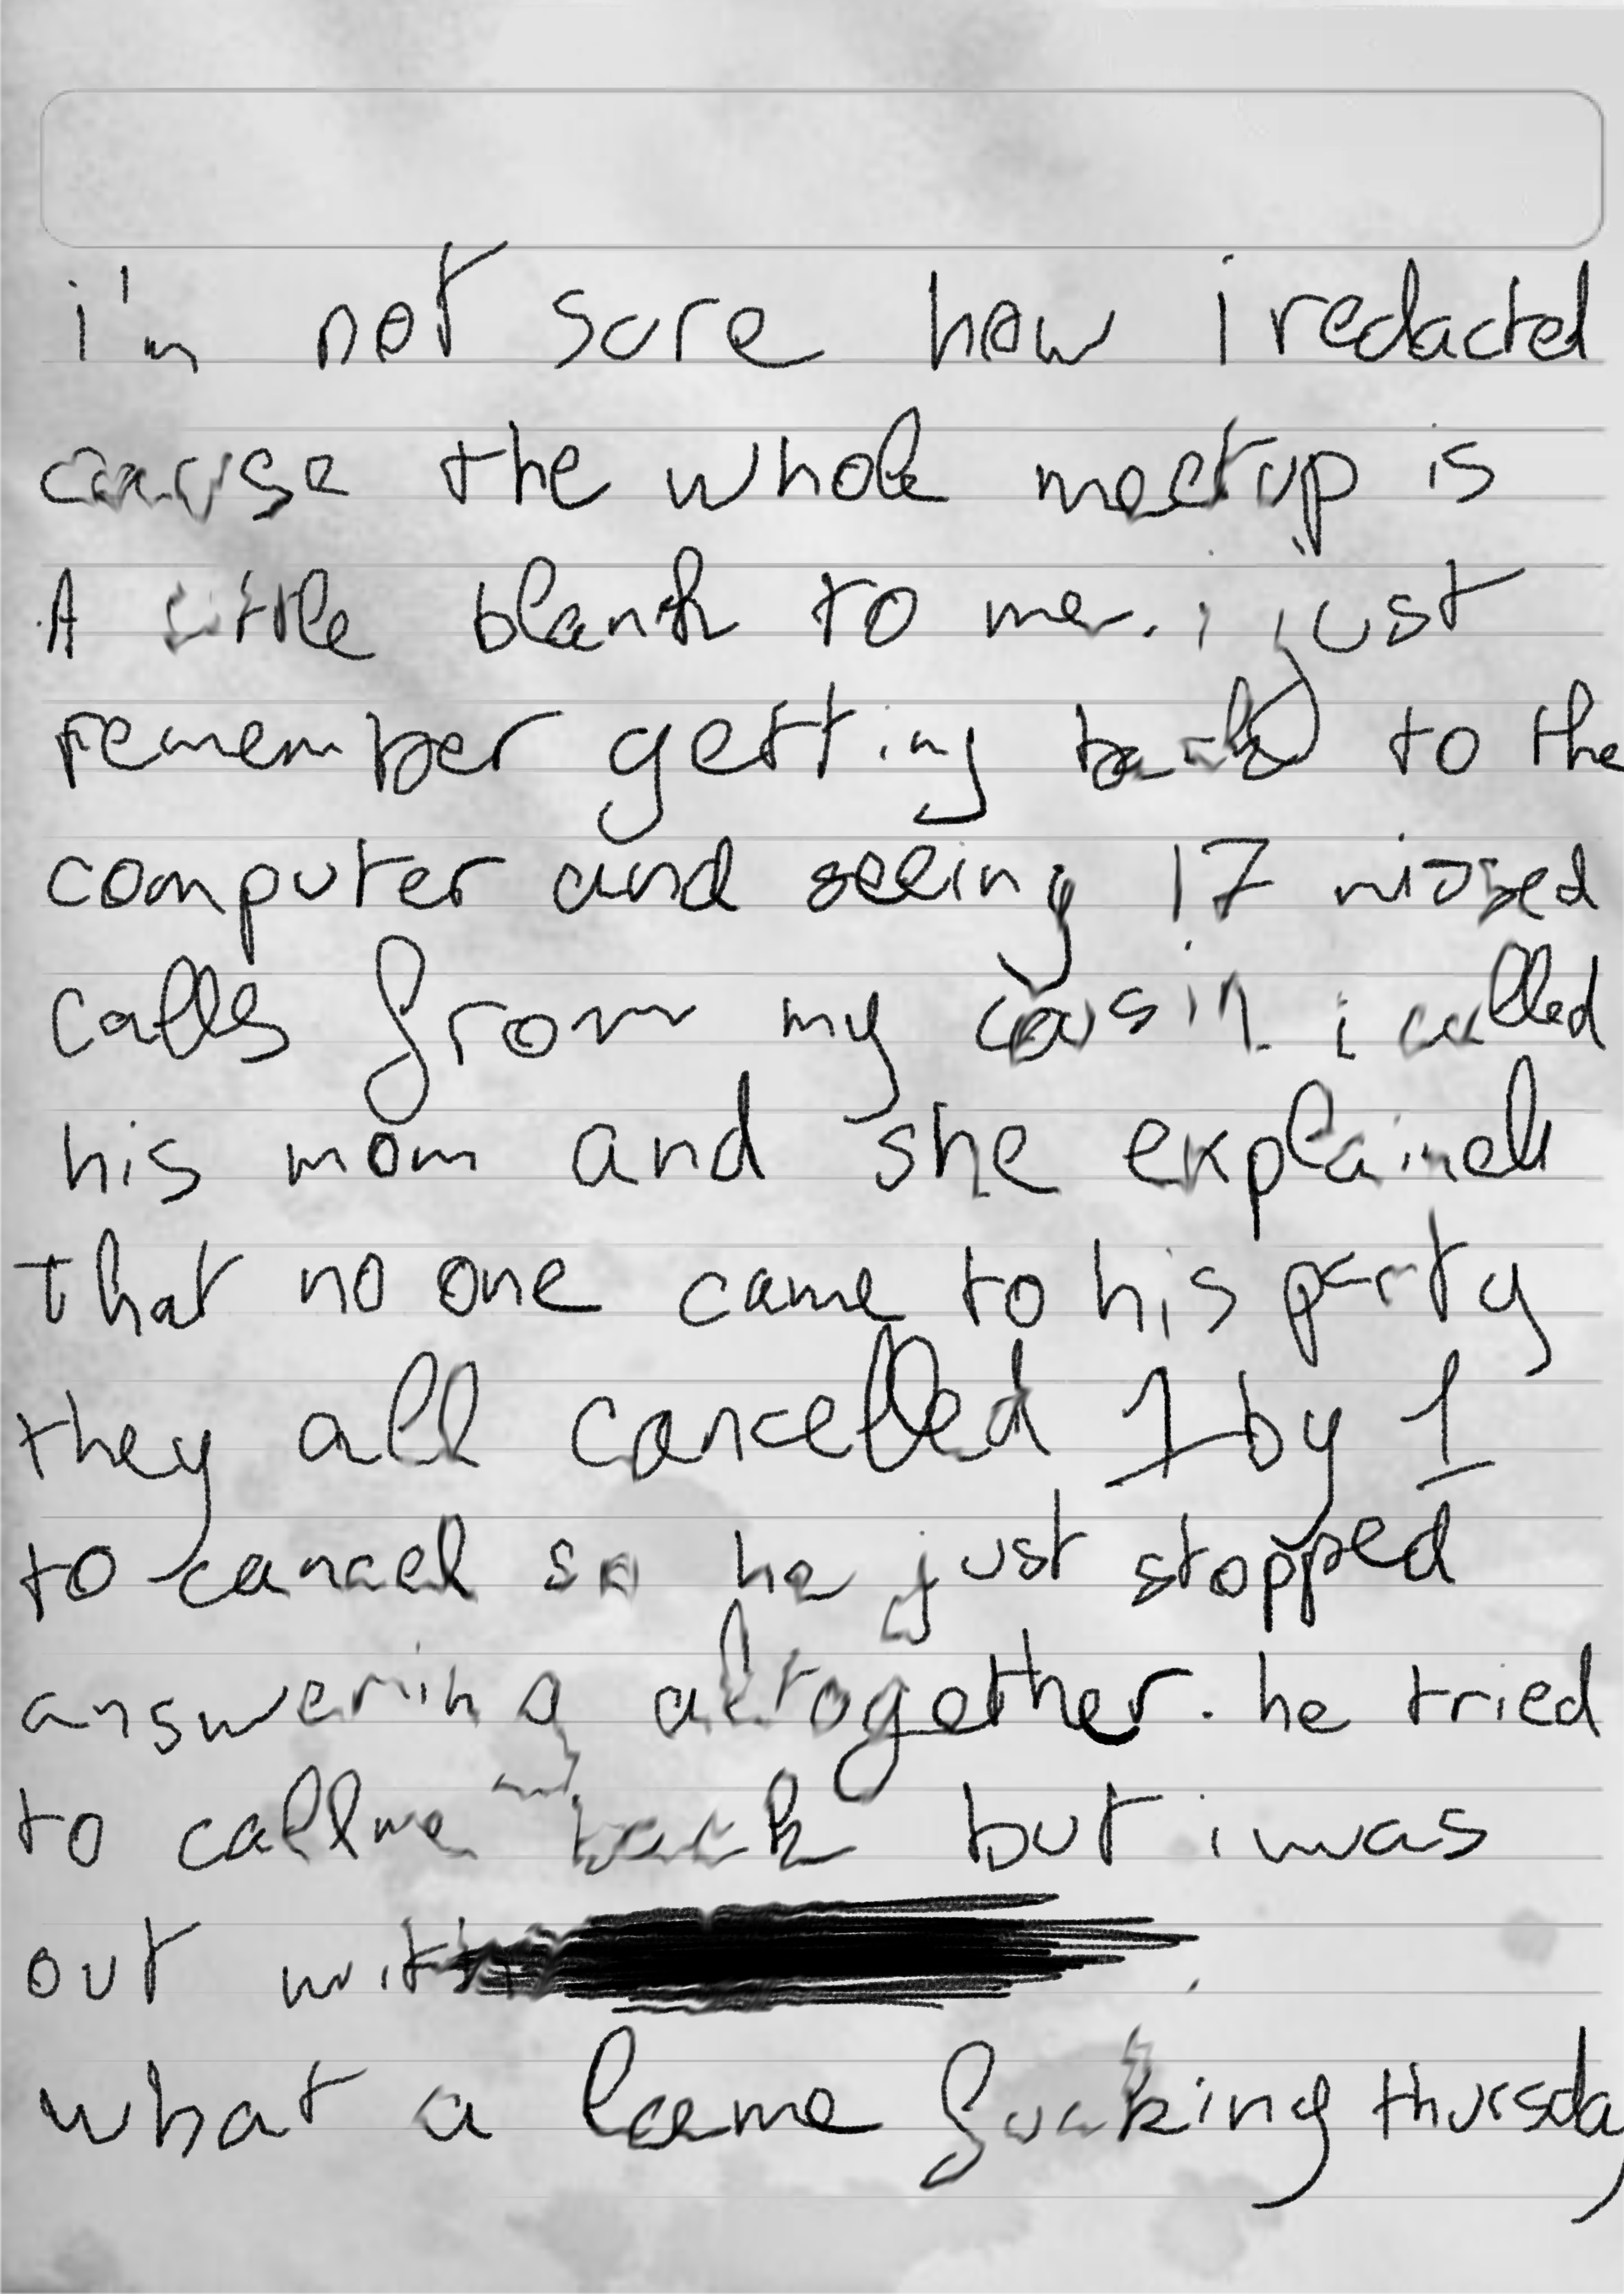 i'm not sure how i redacted
cause the whole meetup is
A little blank to me. i just
remember getting back to the
computer and seeing 17 missed
calls from my cousin. i called
his mom and she explained
that no one came to his party
they all cancelled 1 by 1
to cancel so he just stopped
answering altogether. he tried
to call me back but i was
out with .
what a lame fucking thursday